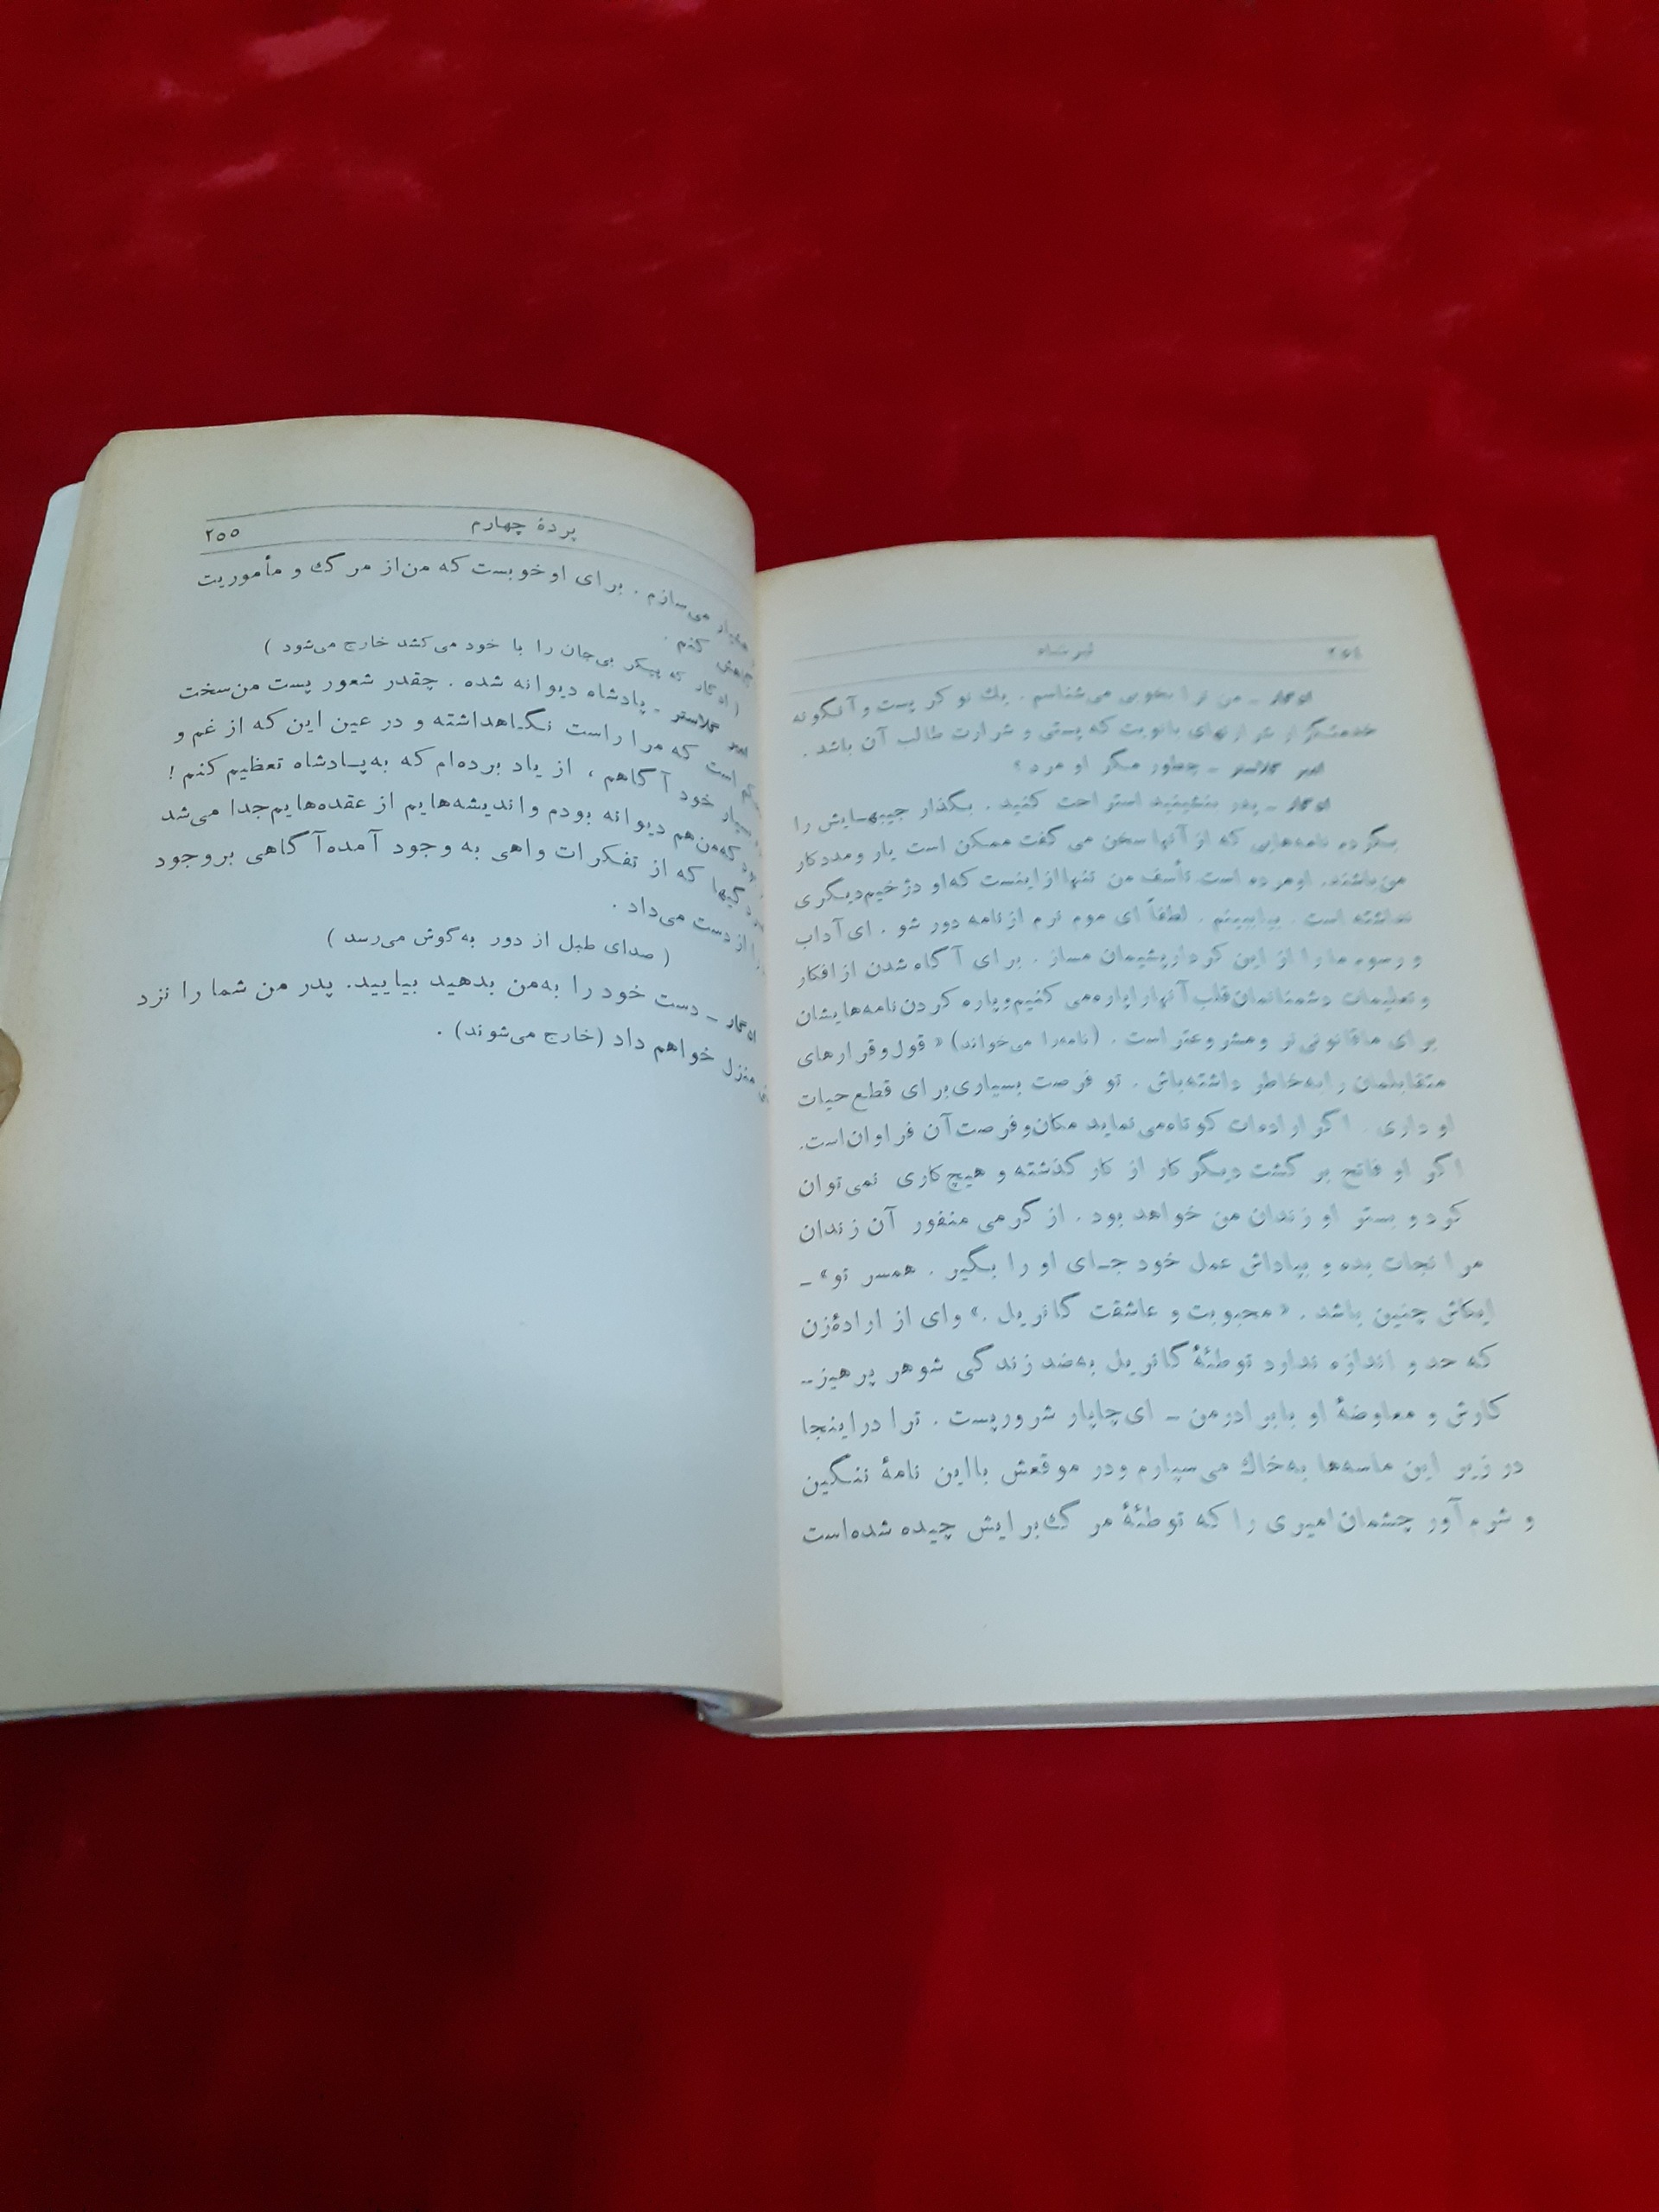 لیرشاه
ادگار ـ من ترا بخوبی می‌شناسم . یك نوکر پست و آنگونه
خدمتگزار شرارتهای بانویت که پستی و شرارت طالب آن باشد .
امیر گلاستر ـ چطور مگر او مرد ؟
ادگار ـ پدر بنشینید استراحت کنید . بگذار جیبهـایش را
بگردم نامه‌هایی که از آنها سخن می گفت ممکن است یار و مددکار
من باشند. او مرده است. تأسف من تنها از اینست که او دژخیم دیگری
نداشته است . بیا ببینم . لطفاً ای موم نرم از نامه دور شو . ای آداب
و رسوم ما را از این کردار پشیمان مساز . برای آگاه شدن از افکار
و تعلیمات دشمنانمان قلب آنها را پاره می کنیم و پاره کردن نامه‌هایشان
برای ما قانونی‌تر و مشروعتر است . (نامه‌را می‌خواند) « قول و قرارهای
متقابلمان را به‌خاطر داشته‌باش . تو فرصت بسیاری برای قطع حیات
او داری . اگر اراده‌ات کوتاه می نماید مکان و فرصت آن فراوان است.
اگر او فاتح بر گشت دیگر کار از کار گذشته و هیچ کاری نمی توان
کرد و بستر او زندان من خواهد بود . از گرمی منفور آن زندان
مرا نجات بده و بپاداش عمل خود جـای او را بگیر . همسر تو» ـ
ایکاش چنین باشد . « محبوبت و عاشقت گانریل .» وای از ارادهٔ زن
که حد و اندازه ندارد توطئهٔ گانریل به‌ضد زندگی شوهر پرهیز-
کارش و معاوضهٔ او با برادرمن ـ ای چاپار شرورپست . ترا در اینجا
در زیر این ماسه‌ها به‌خاك می‌سپارم و در موقعش با این نامهٔ ننگین
و شرم آور چشمان امیری را که توطئهٔ مرگ برایش چیده شده‌است
پردهٔ چهارم ۲۵۵
می‌سازم . برای او خوبست که من از مرگ و مأموریت
کنم .
( ادگار که پیکر بی‌جان را با خود می‌کشد خارج می‌شود )
امیر گلاستر ـ پادشاه دیوانه شده . چقدر شعور پست من سخت
است که مرا راست نگـاهداشته و در عین این که از غم و
بسیار خود آگاهم ، از یاد برده‌ام که به‌پـادشاه تعظیم کنم !
که‌من هم دیوانه بودم و اندیشه‌هایم از عقده‌هایم جدا می‌شد
که از تفکرات واهی به وجود آمده آگاهی بر وجود
را از دست می‌داد .
( صدای طبل از دور به‌گوش می‌رسد )
ادگار ـ دست خود را به‌من بدهید بیایید. پدر من شما را نزد
منزل خواهم داد (خارج می‌شوند) .